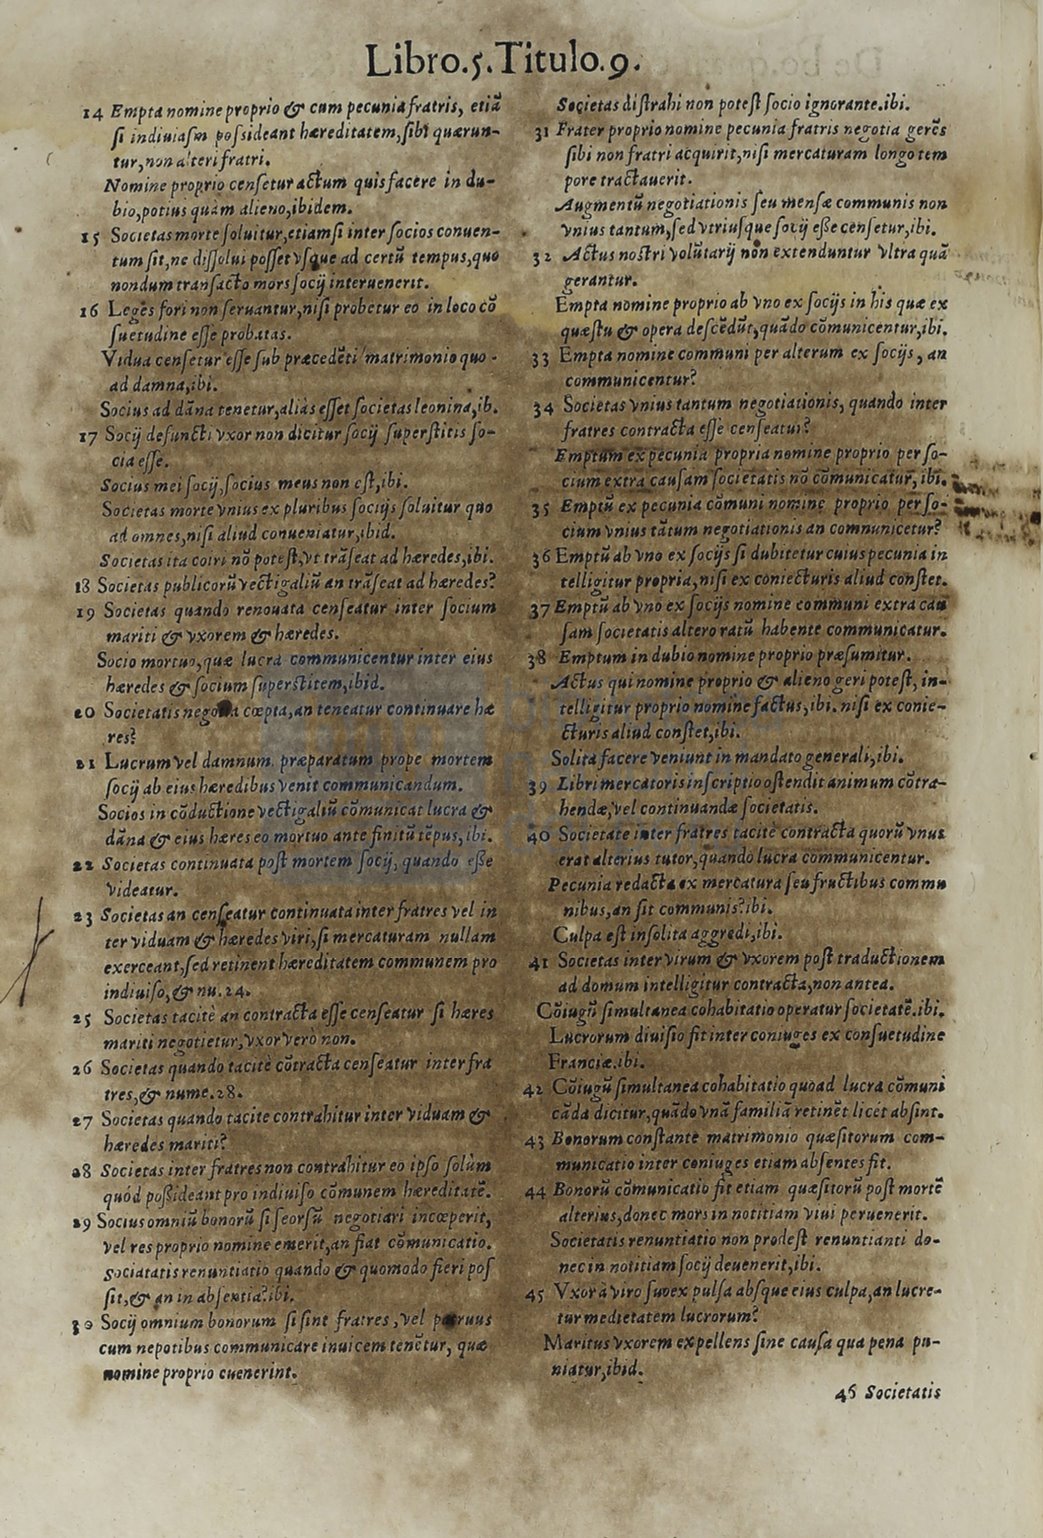 Libro.5.Titulo.9.
14 Empta nomine proprio & cum pecunia fratris, etiā
si indiuiasm possideant hæreditatem, sibi quærun-
tur, non alteri fratri.
Nomine proprio censetur actum quis facere in du-
bio, potius quàm alieno, ibidem.
15 Societas morte soluitur, etiam si inter socios conuen-
tum sit, ne dissolui posset vsque ad certū tempus, quo
nondum transacto mors socij interuenerit.
16 Leges fori non seruantur, nisi probetur eo in loco cō
suetudine esse probatas.
Vidua censetur esse sub præcedēti matrimonio quo-
ad damna, ibi.
Socius ad dāna tenetur, aliàs esset societas leonina, ib.
17 Socij defuncti vxor non dicitur socij superstitis so-
cia esse.
Socius mei socij, socius meus non est, ibi.
Societas morte vnius ex pluribus socijs soluitur quo
ad omnes, nisi aliud conueniatur, ibid.
Societas ita coiri nō potest, vt trāseat ad hæredes, ibi.
18 Societas publicorū vectigaliū an trāseat ad hæredes?
19 Societas quando renouata censeatur inter socium
mariti & vxorem & hæredes.
Socio mortuo, quæ lucra communicentur inter eius
hæredes & socium superstitem, ibid.
20 Societatis negotia cœpta, an teneatur continuare hæ
res?
21 Lucrum vel damnum præparatum prope mortem
socij ab eius hæredibus venit communicandum.
Socios in cōductione vectigaliū cōmunicat lucra &
dāna & eius hæres eo mortuo ante finitū tēpus, ibi.
22 Societas continuata post mortem socij, quando esse
videatur.
23 Societas an censeatur continuata inter fratres vel in
ter viduam & hæredes viri, si mercaturam nullam
exerceant, sed retinent hæreditatem communem pro
indiuiso, & nu. 24.
25 Societas tacitè an contracta esse censeatur si hæres
mariti negotietur, vxor verò non.
26 Societas quando tacitè cōtracta censeatur inter fra
tres, & nume. 28.
27 Societas quando tacite contrahitur inter viduam &
hæredes mariti?
28 Societas inter fratres non contrahitur eo ipso solùm
quód possideant pro indiuiso cōmunem hæreditatē.
29 Socius omniū bonorū si seorsū negotiari incœperit,
vel res proprio nomine emerit, an fiat cōmunicatio.
Sociatatis renuntiatio quando & quomodo fieri pos
sit, & an in absentia? ibi.
30 Socij omnium bonorum si sint fratres, vel patruus
cum nepotibus communicare inuicem tenētur, quæ
nomine proprio euenerint.
Societas distrahi non potest socio ignorante. ibi.
31 Frater proprio nomine pecunia fratris negotia gerēs
sibi non fratri acquirit, nisi mercaturam longo tem
pore tractauerit.
Augmentū negotiationis seu mensæ communis non
vnius tantum, sed vtriusque socij esse censetur, ibi.
32 Actus nostri volūtarij non extenduntur vltra quā
gerantur.
Empta nomine proprio ab vno ex socijs in his quæ ex
quæstu & opera descēdūt, quādo cōmunicentur, ibi.
33 Empta nomine communi per alterum ex socijs, an
communicentur?
34 Societas vnius tantum negotiationis, quando inter
fratres contracta esse censeatur?
Emptum ex pecunia propria nomine proprio per so-
cium extra causam societatis nō cōmunicatur, ibi.
35 Emptū ex pecunia cōmuni nomine proprio per so-
cium vnius tātum negotiationis an communicetur?
36 Emptū ab vno ex socijs si dubitetur cuius pecunia in
telligitur propria, nisi ex coniecturis aliud constet.
37 Emptū ab vno ex socijs nomine communi extra cau
sam societatis altero ratū habente communicatur.
38 Emptum in dubio nomine proprio præsumitur.
Actus qui nomine proprio & alieno geri potest, in-
telligitur proprio nomine factus, ibi. nisi ex conie-
cturis aliud constet, ibi.
Solita facere veniunt in mandato generali, ibi.
39 Libri mercatoris inscriptio ostendit animum cōtra-
hendæ, vel continuandæ societatis.
40 Societate inter fratres tacitè contracta quorū vnus
erat alterius tutor, quando lucra communicentur.
Pecunia redacta ex mercatura seu fructibus commu
nibus, an sit communis? ibi.
Culpa est insolita aggredi, ibi.
41 Societas inter virum & vxorem post traductionem
ad domum intelligitur contracta, non antea.
Cōiugū simultanea cohabitatio operatur societatē. ibi.
Lucrorum diuisio fit inter coniuges ex consuetudine
Franciæ. ibi.
42 Cōiugū simultanea cohabitatio quoad lucra cōmuni
cāda dicitur, quādo vnā familiā retinēt licèt absint.
43 Bonorum constante matrimonio quæsitorum com-
municatio inter coniuges etiam absentes fit.
44 Bonorū cōmunicatio fit etiam quæsitorū post mortē
alterius, donec mors in notitiam viui peruenerit.
Societatis renuntiatio non prodest renuntianti do-
nec in notitiam socij deuenerit, ibi.
45 Vxor à viro suo ex pulsa absque eius culpa, an lucre-
tur medietatem lucrorum?
Maritus vxorem expellens sine causa qua pena pu-
niatur, ibid.
46 Societatis